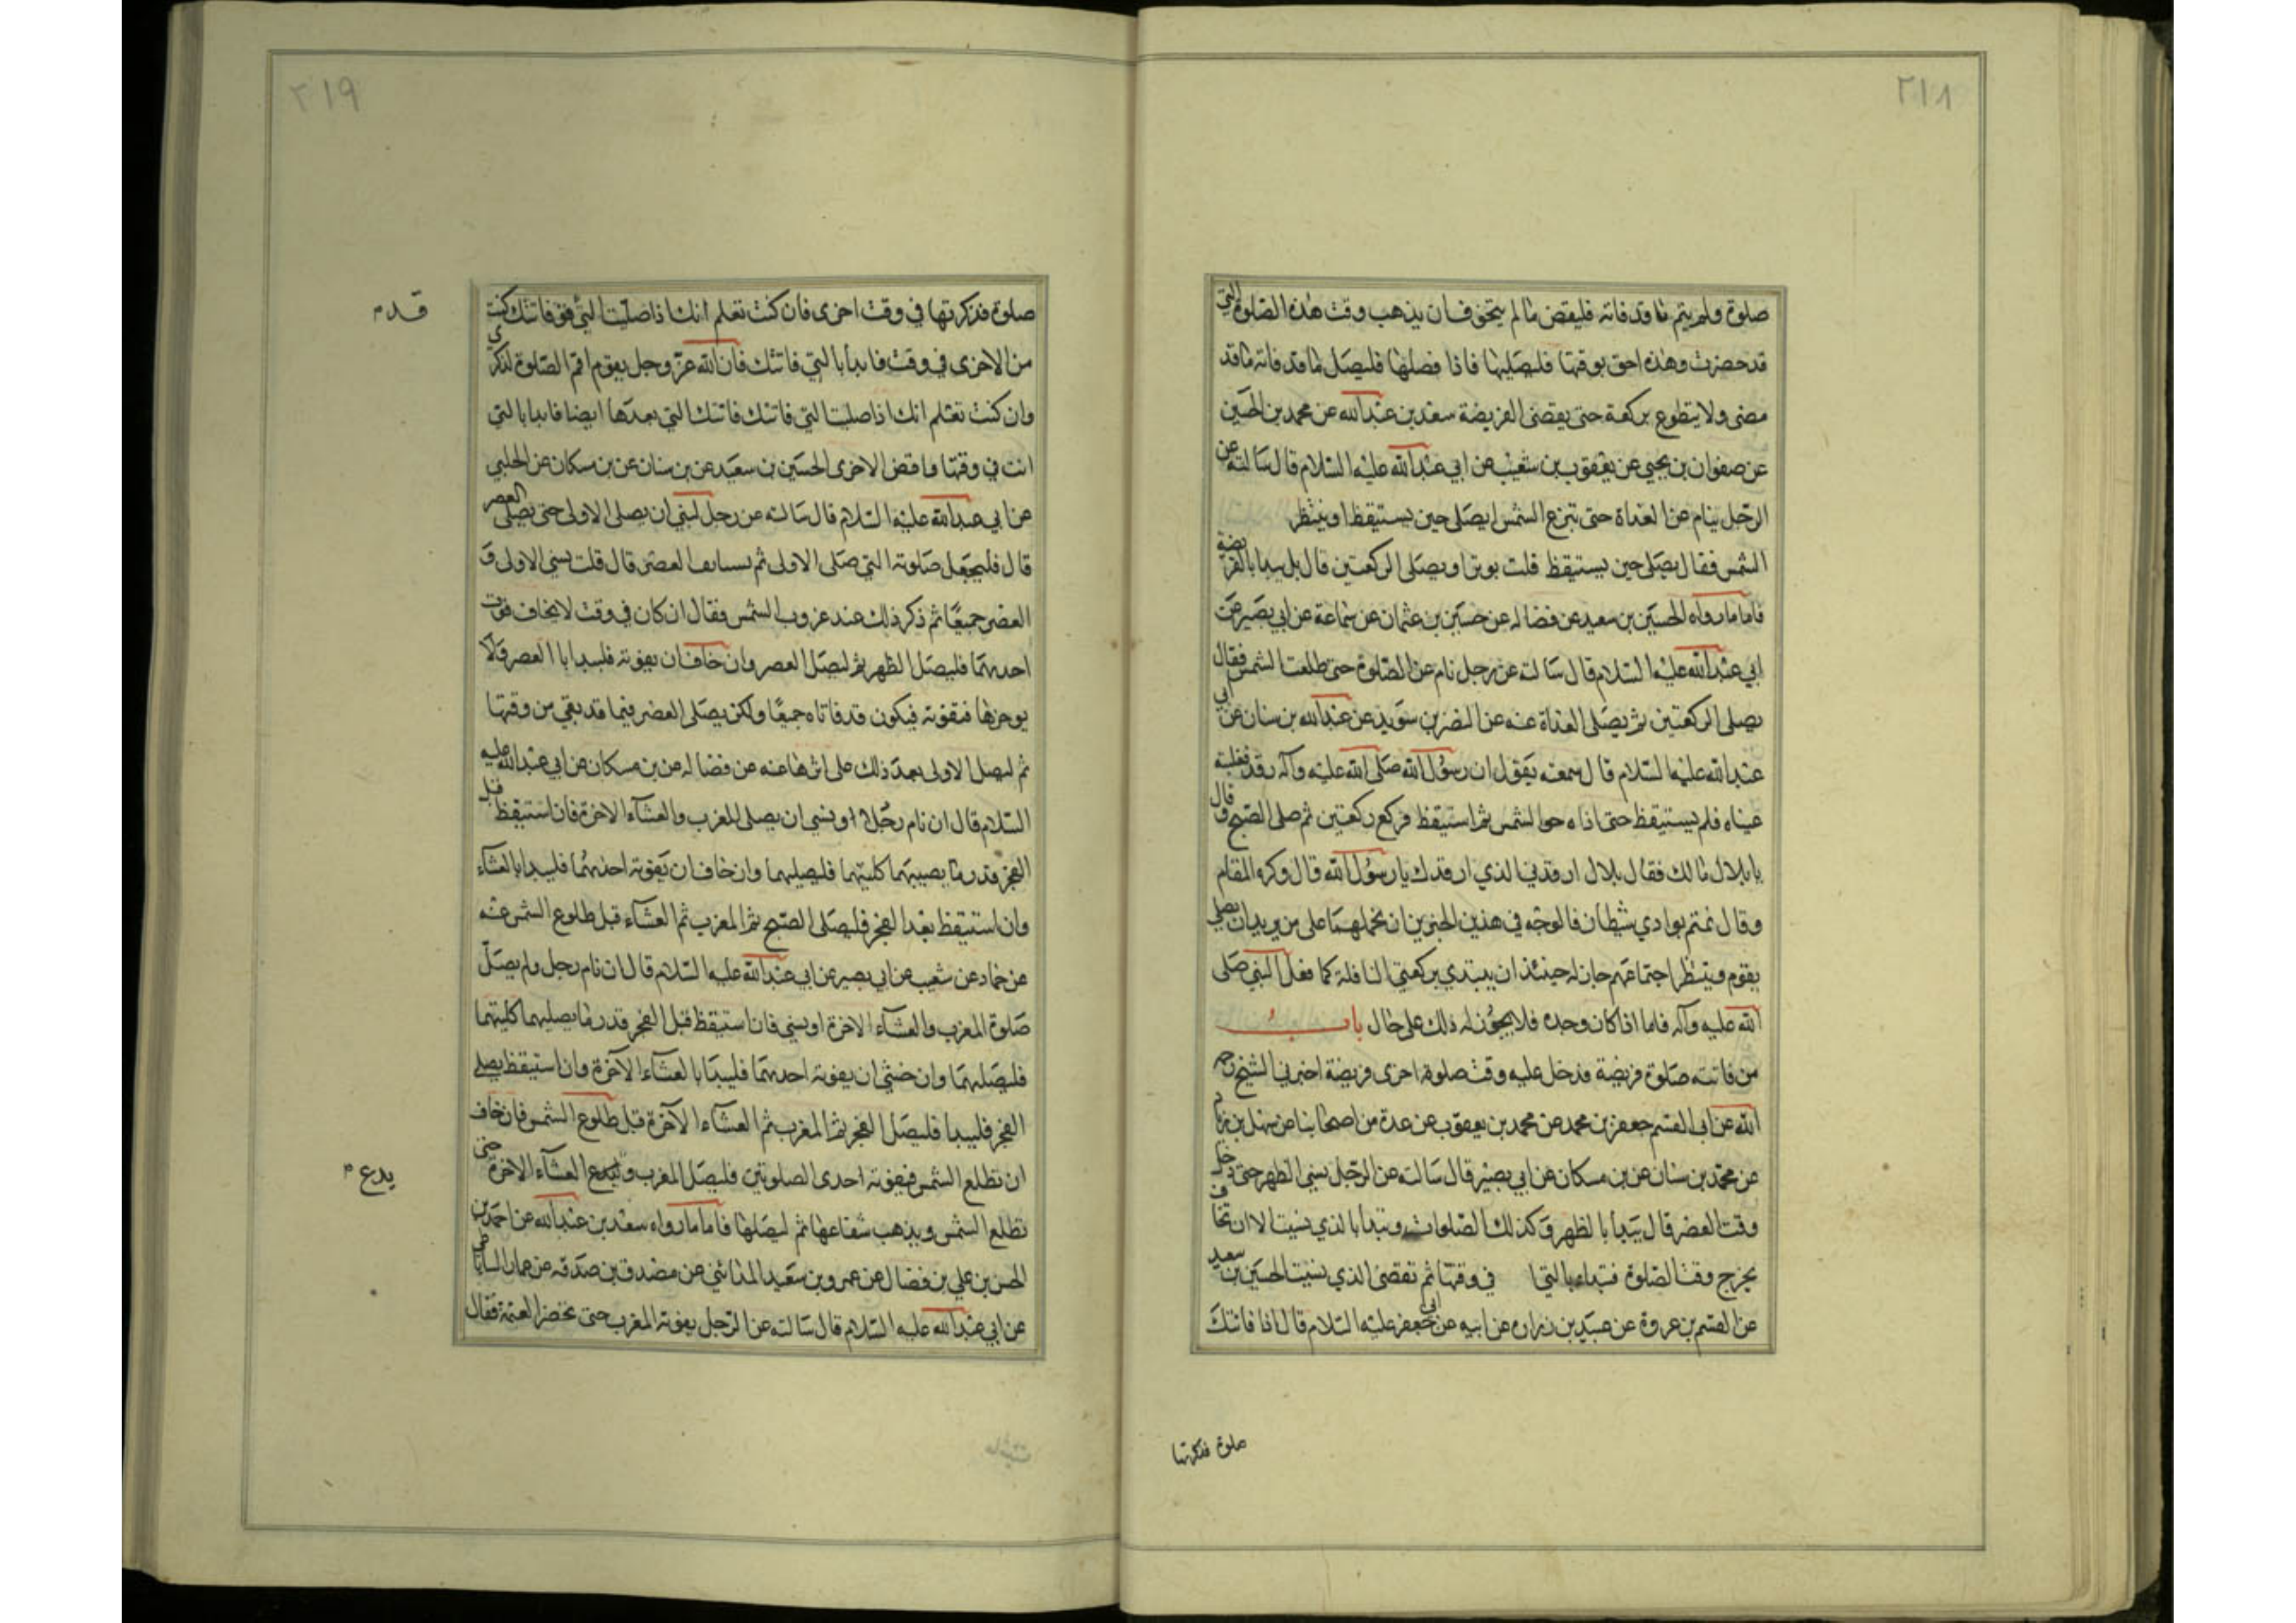 ٢١٨
صلوة ولم يتم ما قد فاته فليقض ما لم يتخوف ان يذهب وقت هذه الصلوة التي
قد حضرت وهذه احق بوقتها فليصليها فاذا فصلها فليصل ما قد فاته ما قد
مضى ولا يتطوع بركعة حتى يقضى الفريضة سعد بن عبد الله عن محمد بن الحسين
عن صفوان بن يحيى عن يعقوب بن شعيب عن ابي عبد الله عليه السلام قال سالته عن
الرجل ينام عن الغداة حتى تبزغ الشمس ايصلى حين يستيقظ او ينتظر
الشمس فقال يصلى حين يستيقظ قلت يوتر او يصلى الركعتين قال بل يبدا بالفريضة
فاما ما رواه الحسين بن سعيد عن فضاله عن حسين بن عثمان عن سماعة عن ابي بصير عن
ابي عبد الله عليه السلام قال سالته عن رجل نام عن الصلوة حتى طلعت الشمس فقال
يصلى الركعتين ثم يصلى الغداة عنه عن النضر بن سويد عن عبد الله بن سنان عن ابي
عبد الله عليه السلام قال سمعته يقول ان رسول الله صلى الله عليه وآله رقد فغلبته
عيناه فلم يستيقظ حتى اذاه حر الشمس ثم استيقظ فركع ركعتين ثم صلى الصبح وقال
يا بلال مالك فقال بلال ارقدني الذي ارقدك يا رسول الله قال وكره المقام
وقال نمتم بوادي شيطان فالوجه في هذين الخبرين ان نحملهما على من يريد ان يصلى
بقوم وينتظر اجتماعهم جاز له حينئذ ان يبتدي بركعتي النافلة كما فعل النبي صلى
الله عليه وآله فاما اذا كان وحده فلا يجوز له ذلك على حال باب
من فاتته صلوة فريضة فدخل عليه وقت صلوة اخرى فريضة اخبرني الشيخ رحمه
الله عن ابي القسم جعفر بن محمد عن محمد بن يعقوب عن عدة من اصحابنا عن سهل بن زيام
عن محمد بن سنان عن بن مسكان عن ابي بصير قال سالته عن الرجل نسي الظهر حتى دخل
وقت العصر قال يبدأ بالظهر وكذلك الصلوات وتبدأ بالذي نسيت الا ان تخاف
يخرج وقت الصلوة فتبداء بالتي ا في وقتها ثم تقضى الذي نسيت الحسين بن سعيد
عن القسم بن عروة عن عبيد بن زراره عن ابيه عن ابي جعفر عليه السلام قال اذا فاتتك
صلوة فذكرتها
٢١٩
صلوة فذكرتها في وقت اخرى فان كنت تعلم انك اذا صليت التي فو فاتتك كنت
قدم
من الاخرى في وقت فابدأ بالتي فاتتك فان الله عز وجل يقوم اقم الصلوة لذكري
وان كنت تعلم انك اذا صليت التي فاتتك فاتتك التي بعدها ايضا فابدا بالتي
انت في وقتها واقض الاخرى الحسين بن سعيد عن بن سنان عن بن مسكان عن الحلبي
عن ابي عبد الله عليه السلام قال سالته عن رجل نسي ان يصلى الاولى حتى يصلى العصر
قال فليجعل صلوته التي صلى الاولى ثم يستانف العصر قال قلت نسي الاولى و
العصر جميعا ثم ذكر ذلك عند غروب الشمس فقال ان كان في وقت لا يخاف فوت
احدهما فليصل الظهر ثم ليصل العصر وان خاف ان يفوته فليبدا با العصر ولا
يوخرها فتفوته فيكون قد فاتاه جميعا ولكن يصلى العصر فيما قد بقي من وقتها
ثم ليصل الاولى بعد ذلك على اثرها عنه عن فضاله عن بن مسكان عن ابي عبد الله عليه
السلام قال ان نام رجل او نسي ان يصلى المغرب والعشآء الاخرة فان استيقظ قبل
الفجر قدر ما يصيبهما كليتهما فليصليهما وان خاف ان يفوته احدهما فليبدا بالعشآء
وان استيقظ بعد الفجر فليصلى الصبح ثم المغرب ثم العشآء قبل طلوع الشمس عنه
عن حماد عن شعيب عن ابي بصير عن ابي عبد الله عليه السلام قال ان نام رجل ولم يصل
صلوة المغرب والعشآء الاخرة او نسي فان استيقظ قبل الفجر قدر ما يصليهما كليتهما
فليصليهما وان خشي ان يفوته احدهما فليبدا بالعشآء الآخرة وان استيقظ يصلى
الفجر فليبدا فليصل الفجر ثم المغرب ثم العشآء الآخرة قبل طلوع الشمس فان خاف
ان تطلع الشمس فيفوته احدى الصلوتين فليصل المغرب و يدع العشآء الاخرة حتى
يدع م
تطلع الشمس ويذهب شعاعها ثم ليصلها فاما ما رواه سعد بن عبد الله عن احمد بن
الحسن بن علي بن فضال عن عمرو بن سعيد المدائني عن مصدق بن صدقه عن عمار الساباطي
عن ابي عبد الله عليه السلام قال سالته عن الرجل يفوته المغرب حتى تحضر العتمة فقال